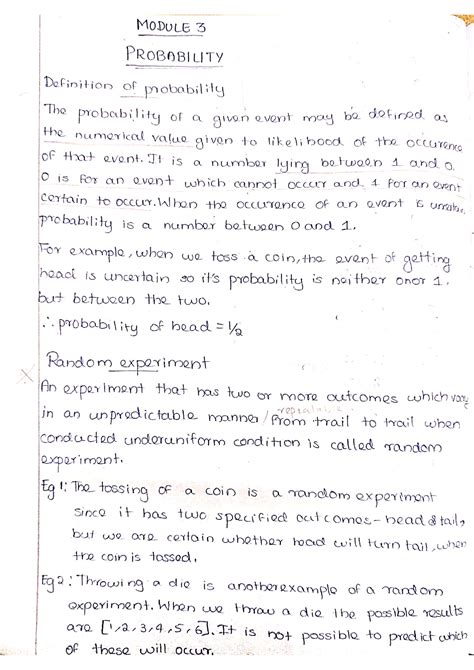 MODULE 3
PROBABILITY
Definition of probability
The probability of a given event may be defined as
the numerical value given to likelihood of the occurence
of that event. It is a number lying between 1 and 0.
0 is for an event which cannot occur and 1 for an event
certain to occur. When the occurence of an event is uncertain,
probability is a number between 0 and 1.
For example, when we toss a coin, the event of getting
head is uncertain so it's probability is neither 0 nor 1.
but between the two.
∴ probability of head = 1/2
Random experiment
An experiment that has two or more outcomes which vary
in an unpredictable manner / from trail to trail when
conducted underuniform condition is called random
experiment.
Eg 1: The tossing of a coin is a random experiment
since it has two specified outcomes - head & tail,
but we are certain whether head will turn tail, when
the coin is tossed.
Eg 2: Throwing a die is another example of a random
experiment. When we thraw a die the possible results
are [1,2,3,4,5,6]. It is not possible to predict which
of these will occur.